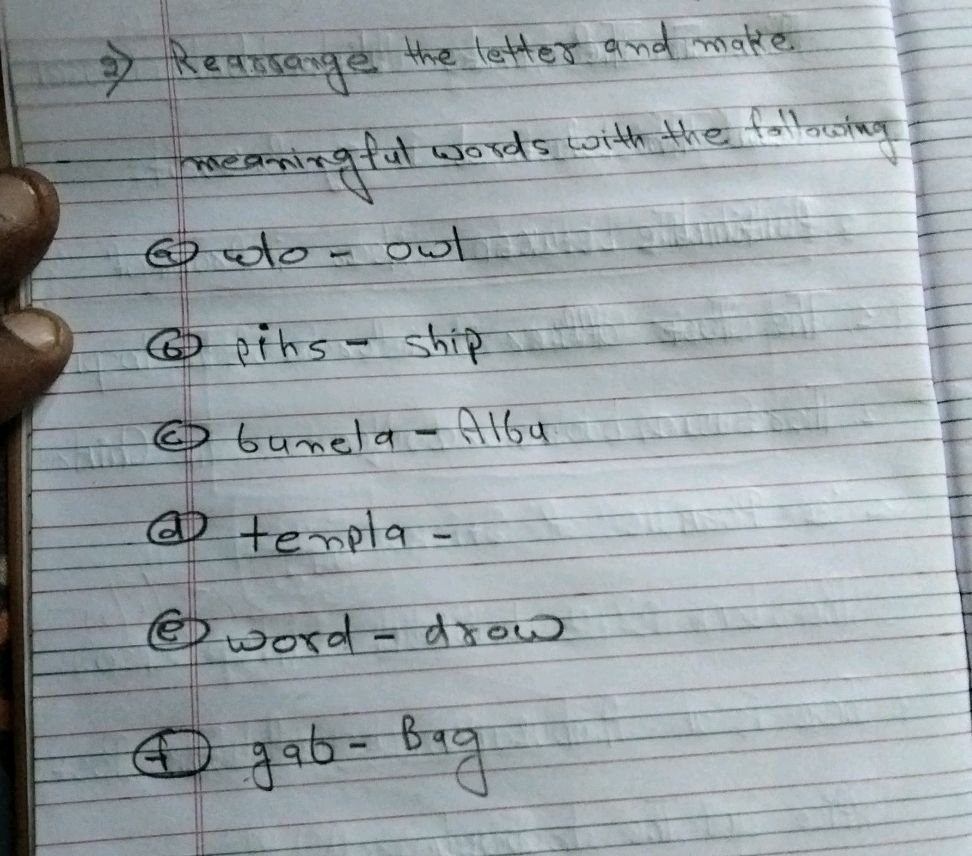 2) Rearrange the letter and make
meaningful words with the following
(a) wlo - owl
(b) pihs - ship
(c) bumela - Albu
(d) templa -
(e) word - drow
(f) gab - Bag